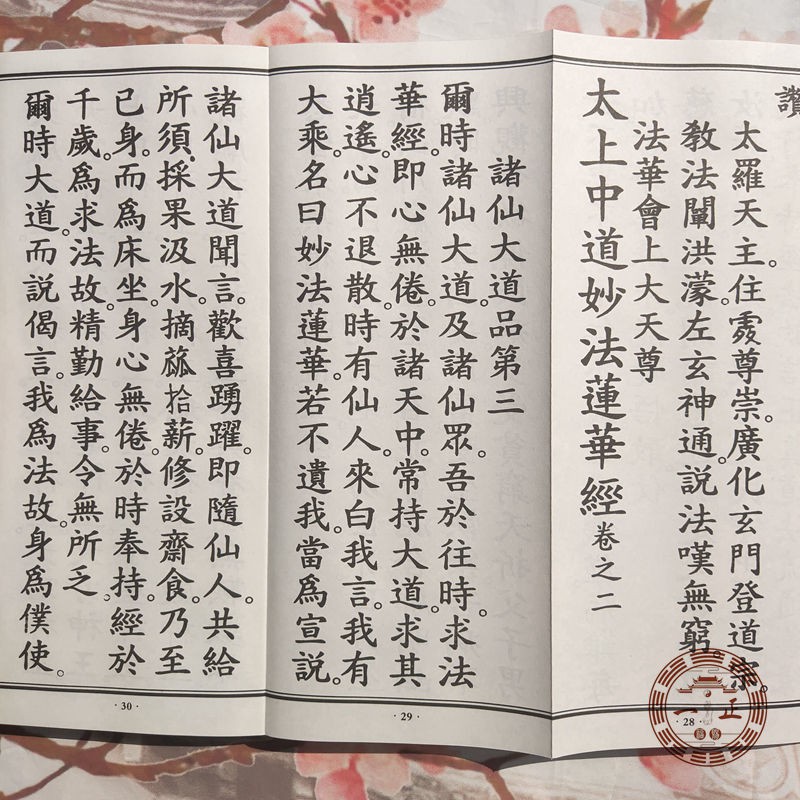 讚
太羅天主。住霞尊崇。廣化玄門登道宗。
教法闡洪濛。左玄神通。說法嘆無窮。
法華會上大天尊
太上中道妙法蓮華經卷之二
28
諸仙大道品第三
爾時諸仙大道。及諸仙眾。吾於往時。求法
華經。即心無倦。於諸天中。常持大道。求其
逍遙。心不退散。時有仙人。來白我言。我有
大乘。名曰妙法蓮華。若不遺我。當為宣說。
29
諸仙大道聞言。歡喜踴躍。即隨仙人。共給
所須。採果汲水。摘蓏拾薪。修設齋食。乃至
己身。而為床坐。身心無倦。於時奉持。經於
千歲。為求法故。精勤給事。令無所乏。
爾時大道。而說偈言。我為法故。身為僕使。
30
一正